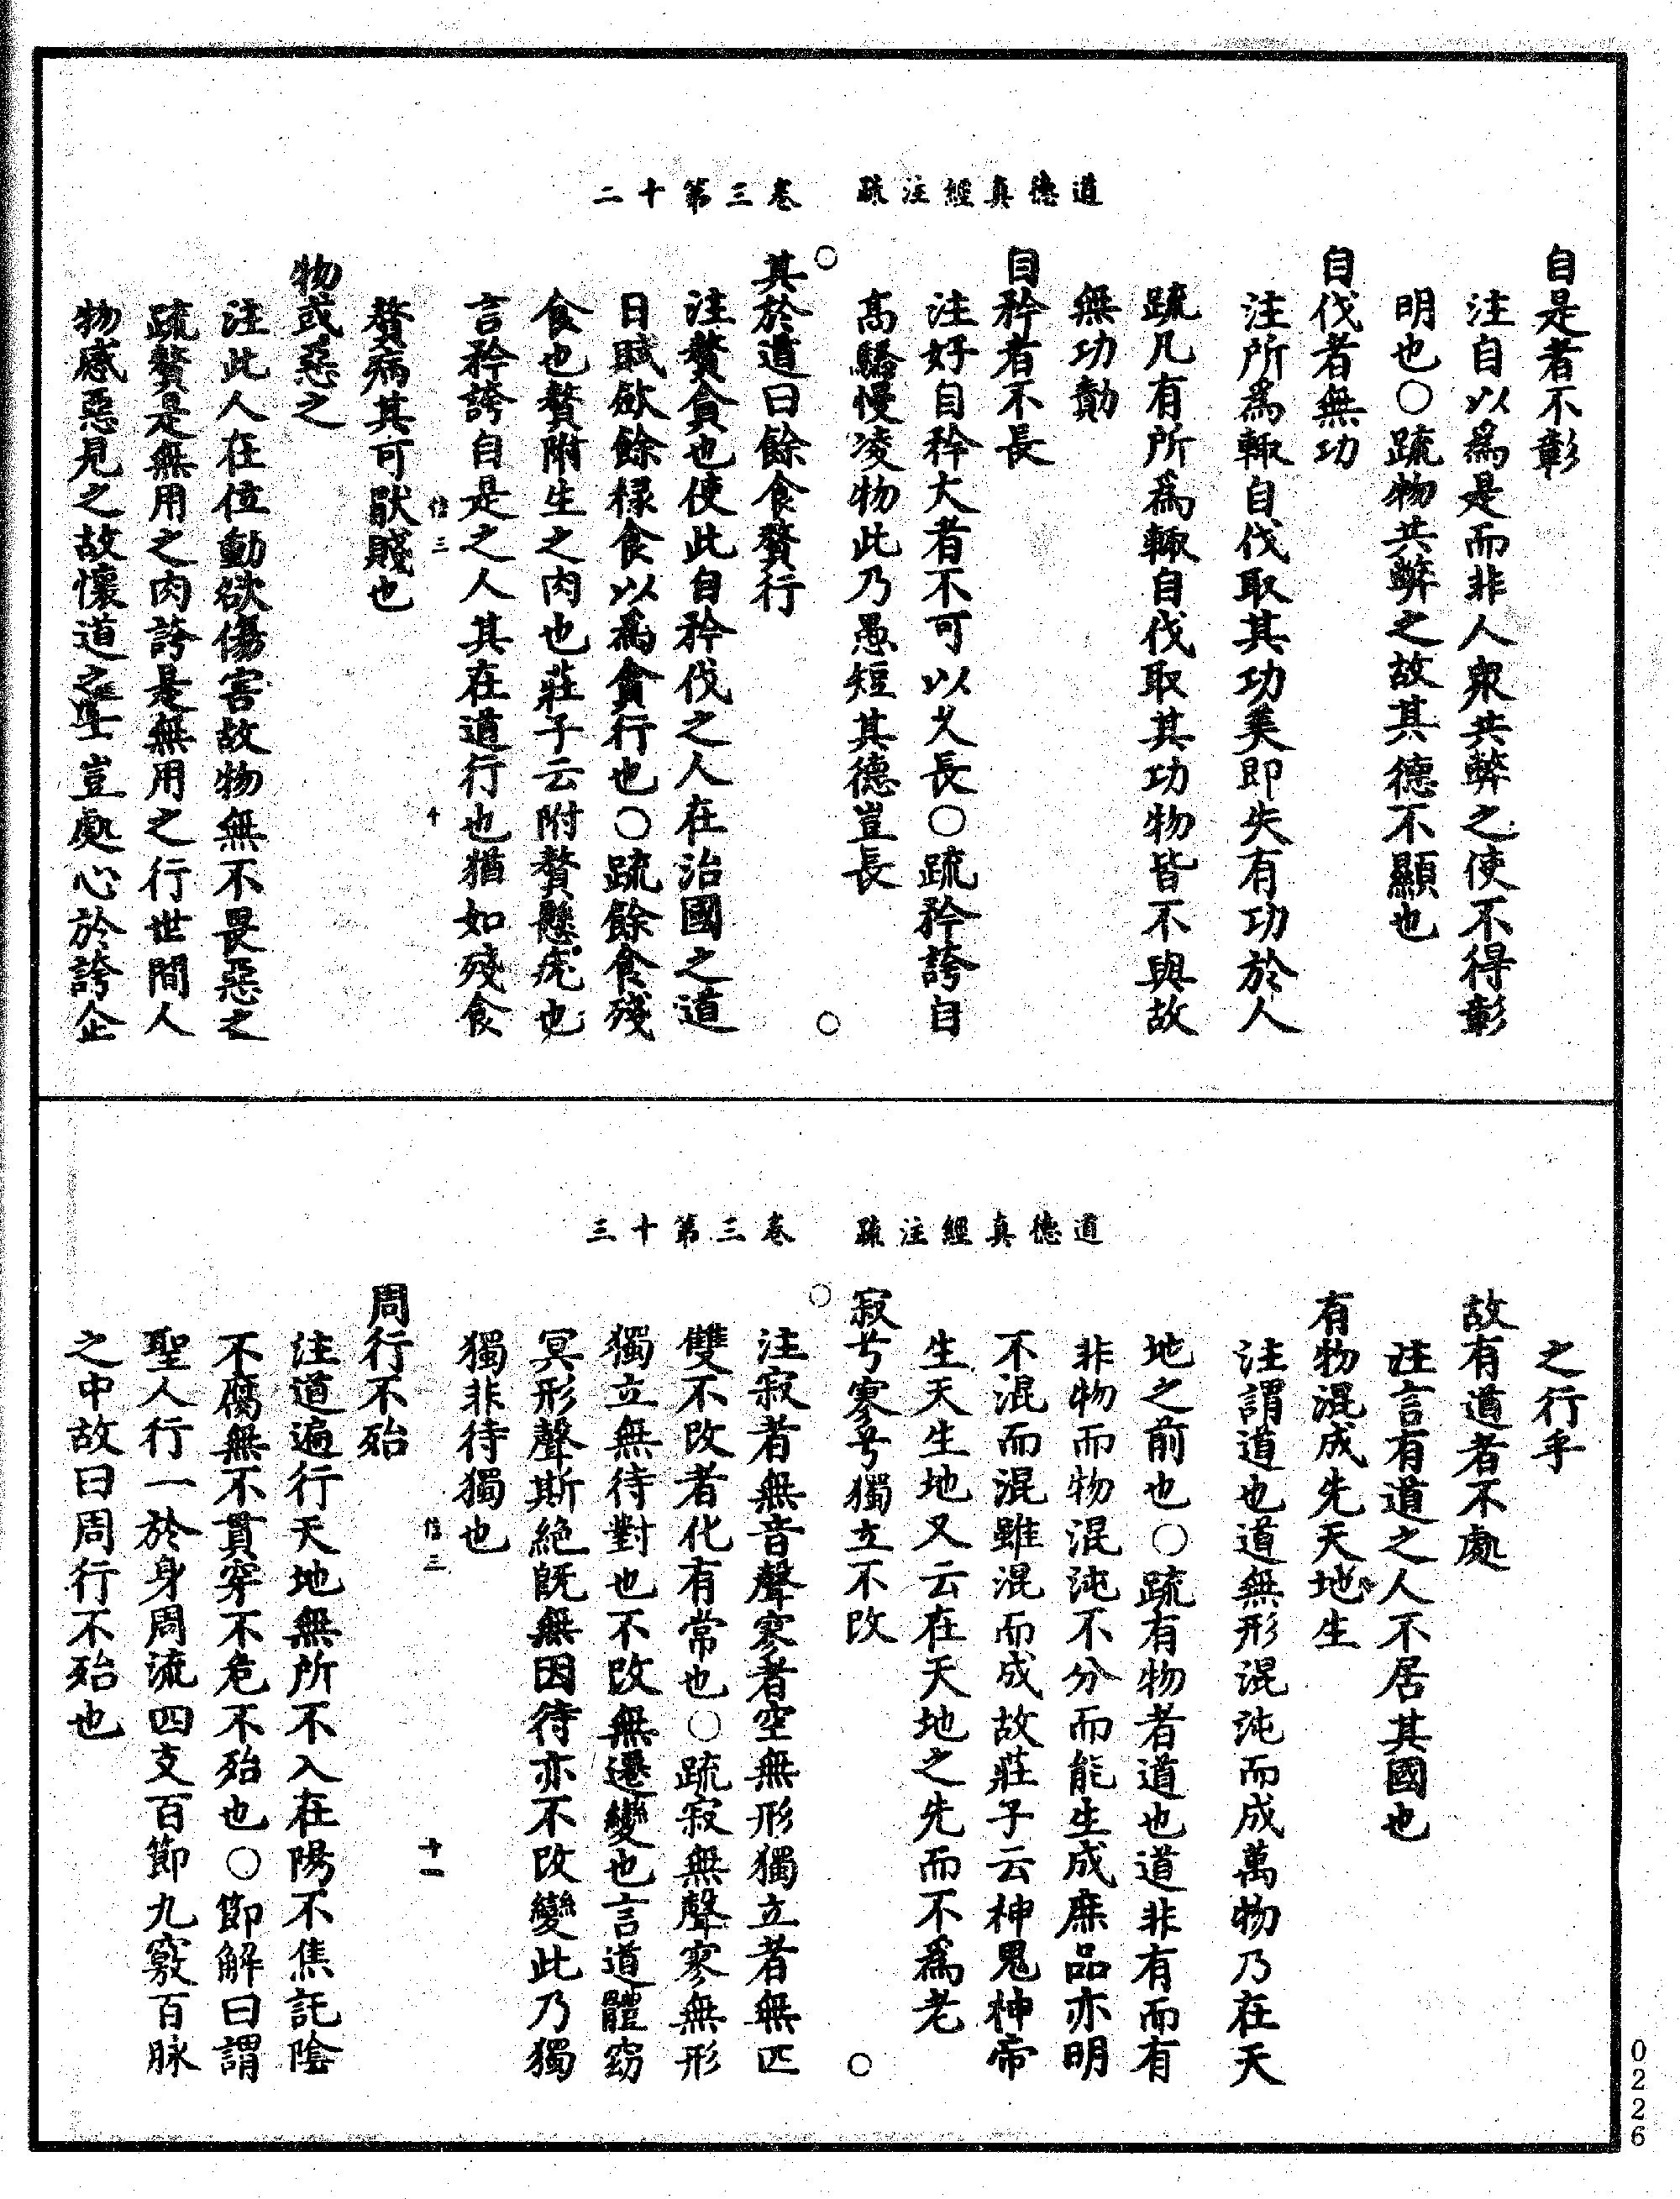 道德真經注疏　卷三第十二
自是者不彰
注自以爲是而非人衆共弊之使不得彰
明也○疏物共弊之故其德不顯也
自伐者無功
注所爲輙自伐取其功美即失有功於人
疏凡有所爲輙自伐取其功物皆不與故
無功勣
自矜者不長
注好自矜大者不可以乆長○疏矜誇自
高驕慢凌物此乃愚短其德豈長
其於道曰餘食贅行
注贅貪也使此自矜伐之人在治國之道
日賦歛餘祿食以爲貪行也○疏餘食殘
食也贅附生之肉也莊子云附贅懸疣也
言矜誇自是之人其在道行也猶如殘食
信三　十
贅病其可猒賤也
物或惡之
注此人在位動欲傷害故物無不畏惡之
疏贅是無用之肉誇是無用之行世間人
物感惡見之故懷道之士豈處心於誇企
道德真經注疏　卷三第十三
之行乎
故有道者不處
注言有道之人不居其國也
有物混成先天地生
注謂道也道無形混沌而成萬物乃在天
地之前也○疏有物者道也道非有而有
非物而物混沌不分而能生成庶品亦明
不混而混雖混而成故莊子云神鬼神帝
生天生地又云在天地之先而不爲老
寂兮寥兮獨立不改
注寂者無音聲寥者空無形獨立者無匹
雙不改者化有常也○疏寂無聲寥無形
獨立無待對也不改無遷變也言道體窈
冥形聲斯絶旣無因待亦不改變此乃獨
獨非待獨也
信三　十一
周行不殆
注道遍行天地無所不入在陽不焦託陰
不腐無不貫穿不危不殆也○節解曰謂
聖人行一於身周流四支百節九竅百脉
之中故曰周行不殆也
0226